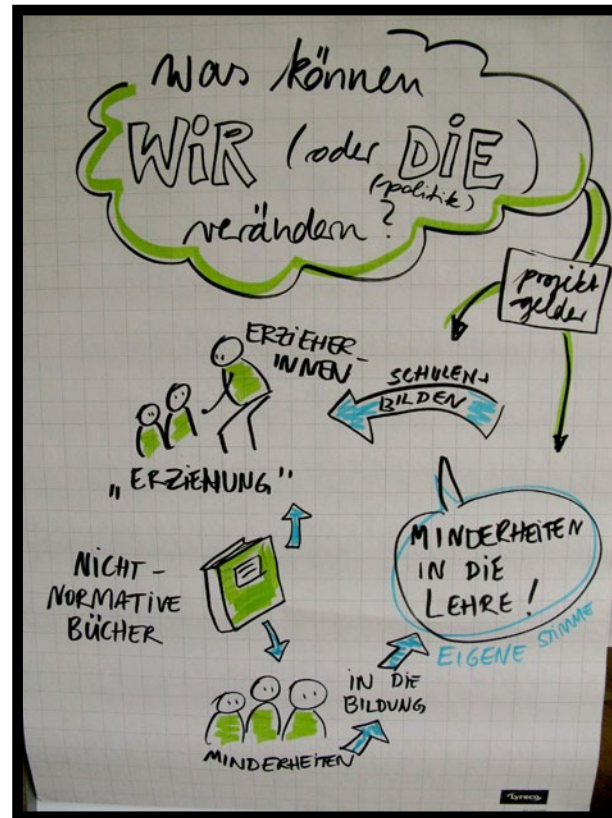 was können
WIR (oder DIE)
(politik)
verändern?
projekt
gelder
ERZIEHER-
INNEN
SCHULEN +
BILDEN
„ERZIEHUNG"
NICHT-
NORMATIVE
BÜCHER
MINDERHEITEN
IN DIE
LEHRE!
EIGENE STIMME
IN DIE
BILDUNG
MINDERHEITEN